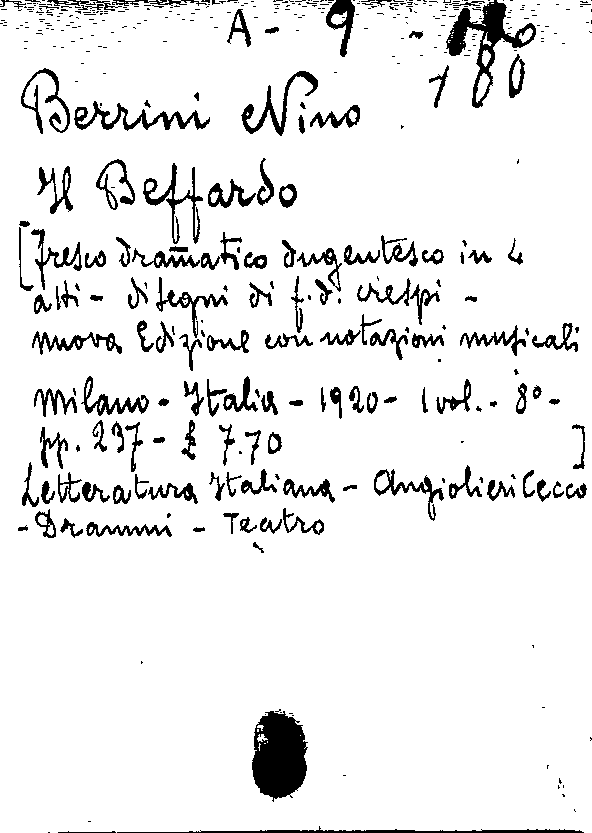 A - 9 -
180
Berrini Nino
Il Beffardo
[fresco drammatico dugentesco in 4
atti - disegni di f. d. crespi -
nuova Edizione con notazioni musicali
Milano - Italia - 1920 - 1 vol. - 8° -
pp. 237 - £ 7.70 ]
Letteratura Italiana - Angiolieri Cecco
- Drammi - Teatro